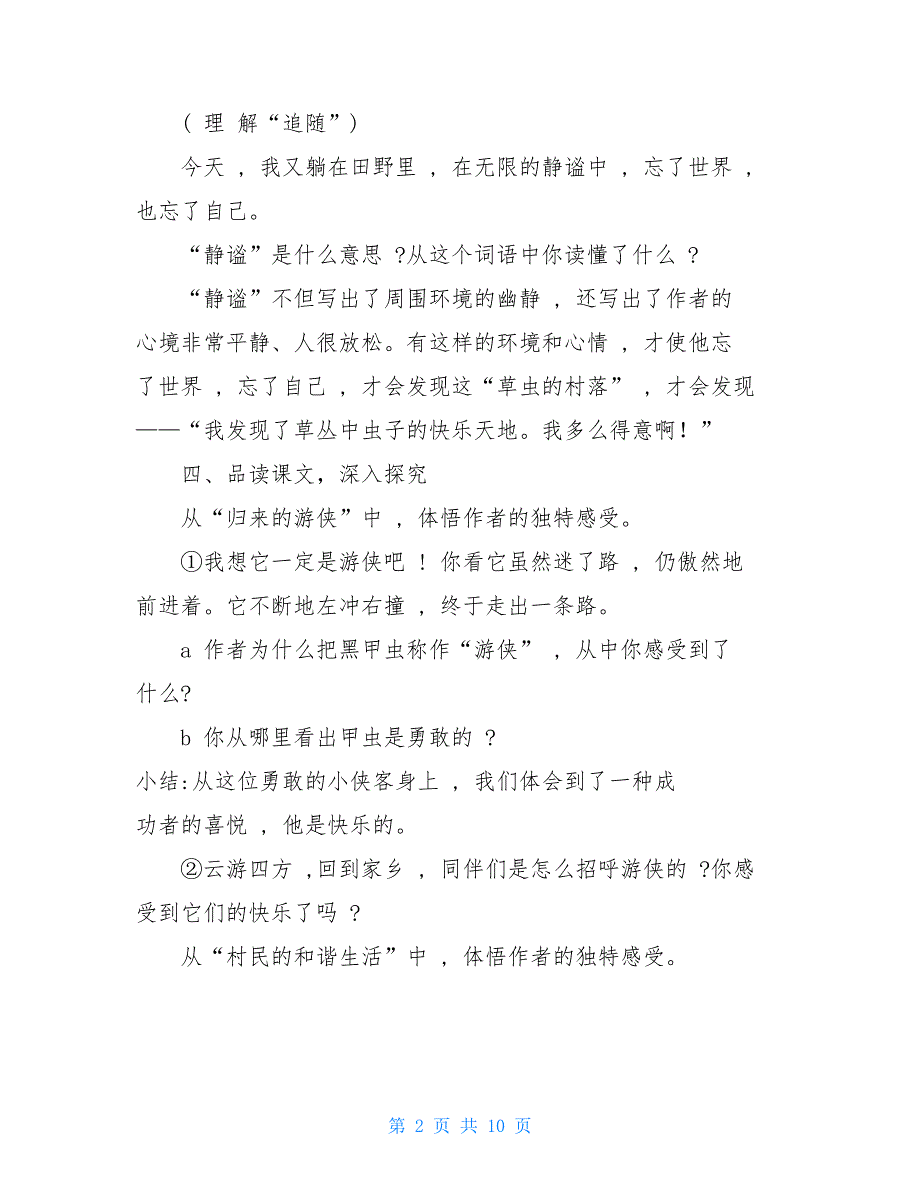 ( 理 解“追随”)
今天 , 我又躺在田野里 , 在无限的静谧中 , 忘了世界 ,
也忘了自己。
“静谧”是什么意思 ?从这个词语中你读懂了什么 ?
“静谧”不但写出了周围环境的幽静 , 还写出了作者的
心境非常平静、人很放松。有这样的环境和心情 , 才使他忘
了世界 , 忘了自己 , 才会发现这“草虫的村落” , 才会发现
——“我发现了草丛中虫子的快乐天地。我多么得意啊！”
四、品读课文，深入探究
从“归来的游侠”中 , 体悟作者的独特感受。
①我想它一定是游侠吧 ! 你看它虽然迷了路 , 仍傲然地
前进着。它不断地左冲右撞 , 终于走出一条路。
a 作者为什么把黑甲虫称作“游侠” , 从中你感受到了
什么?
b 你从哪里看出甲虫是勇敢的 ?
小结:从这位勇敢的小侠客身上 , 我们体会到了一种成
功者的喜悦 , 他是快乐的。
②云游四方 ,回到家乡 , 同伴们是怎么招呼游侠的 ?你感
受到它们的快乐了吗 ?
从“村民的和谐生活”中 , 体悟作者的独特感受。
第 2 页 共 10 页